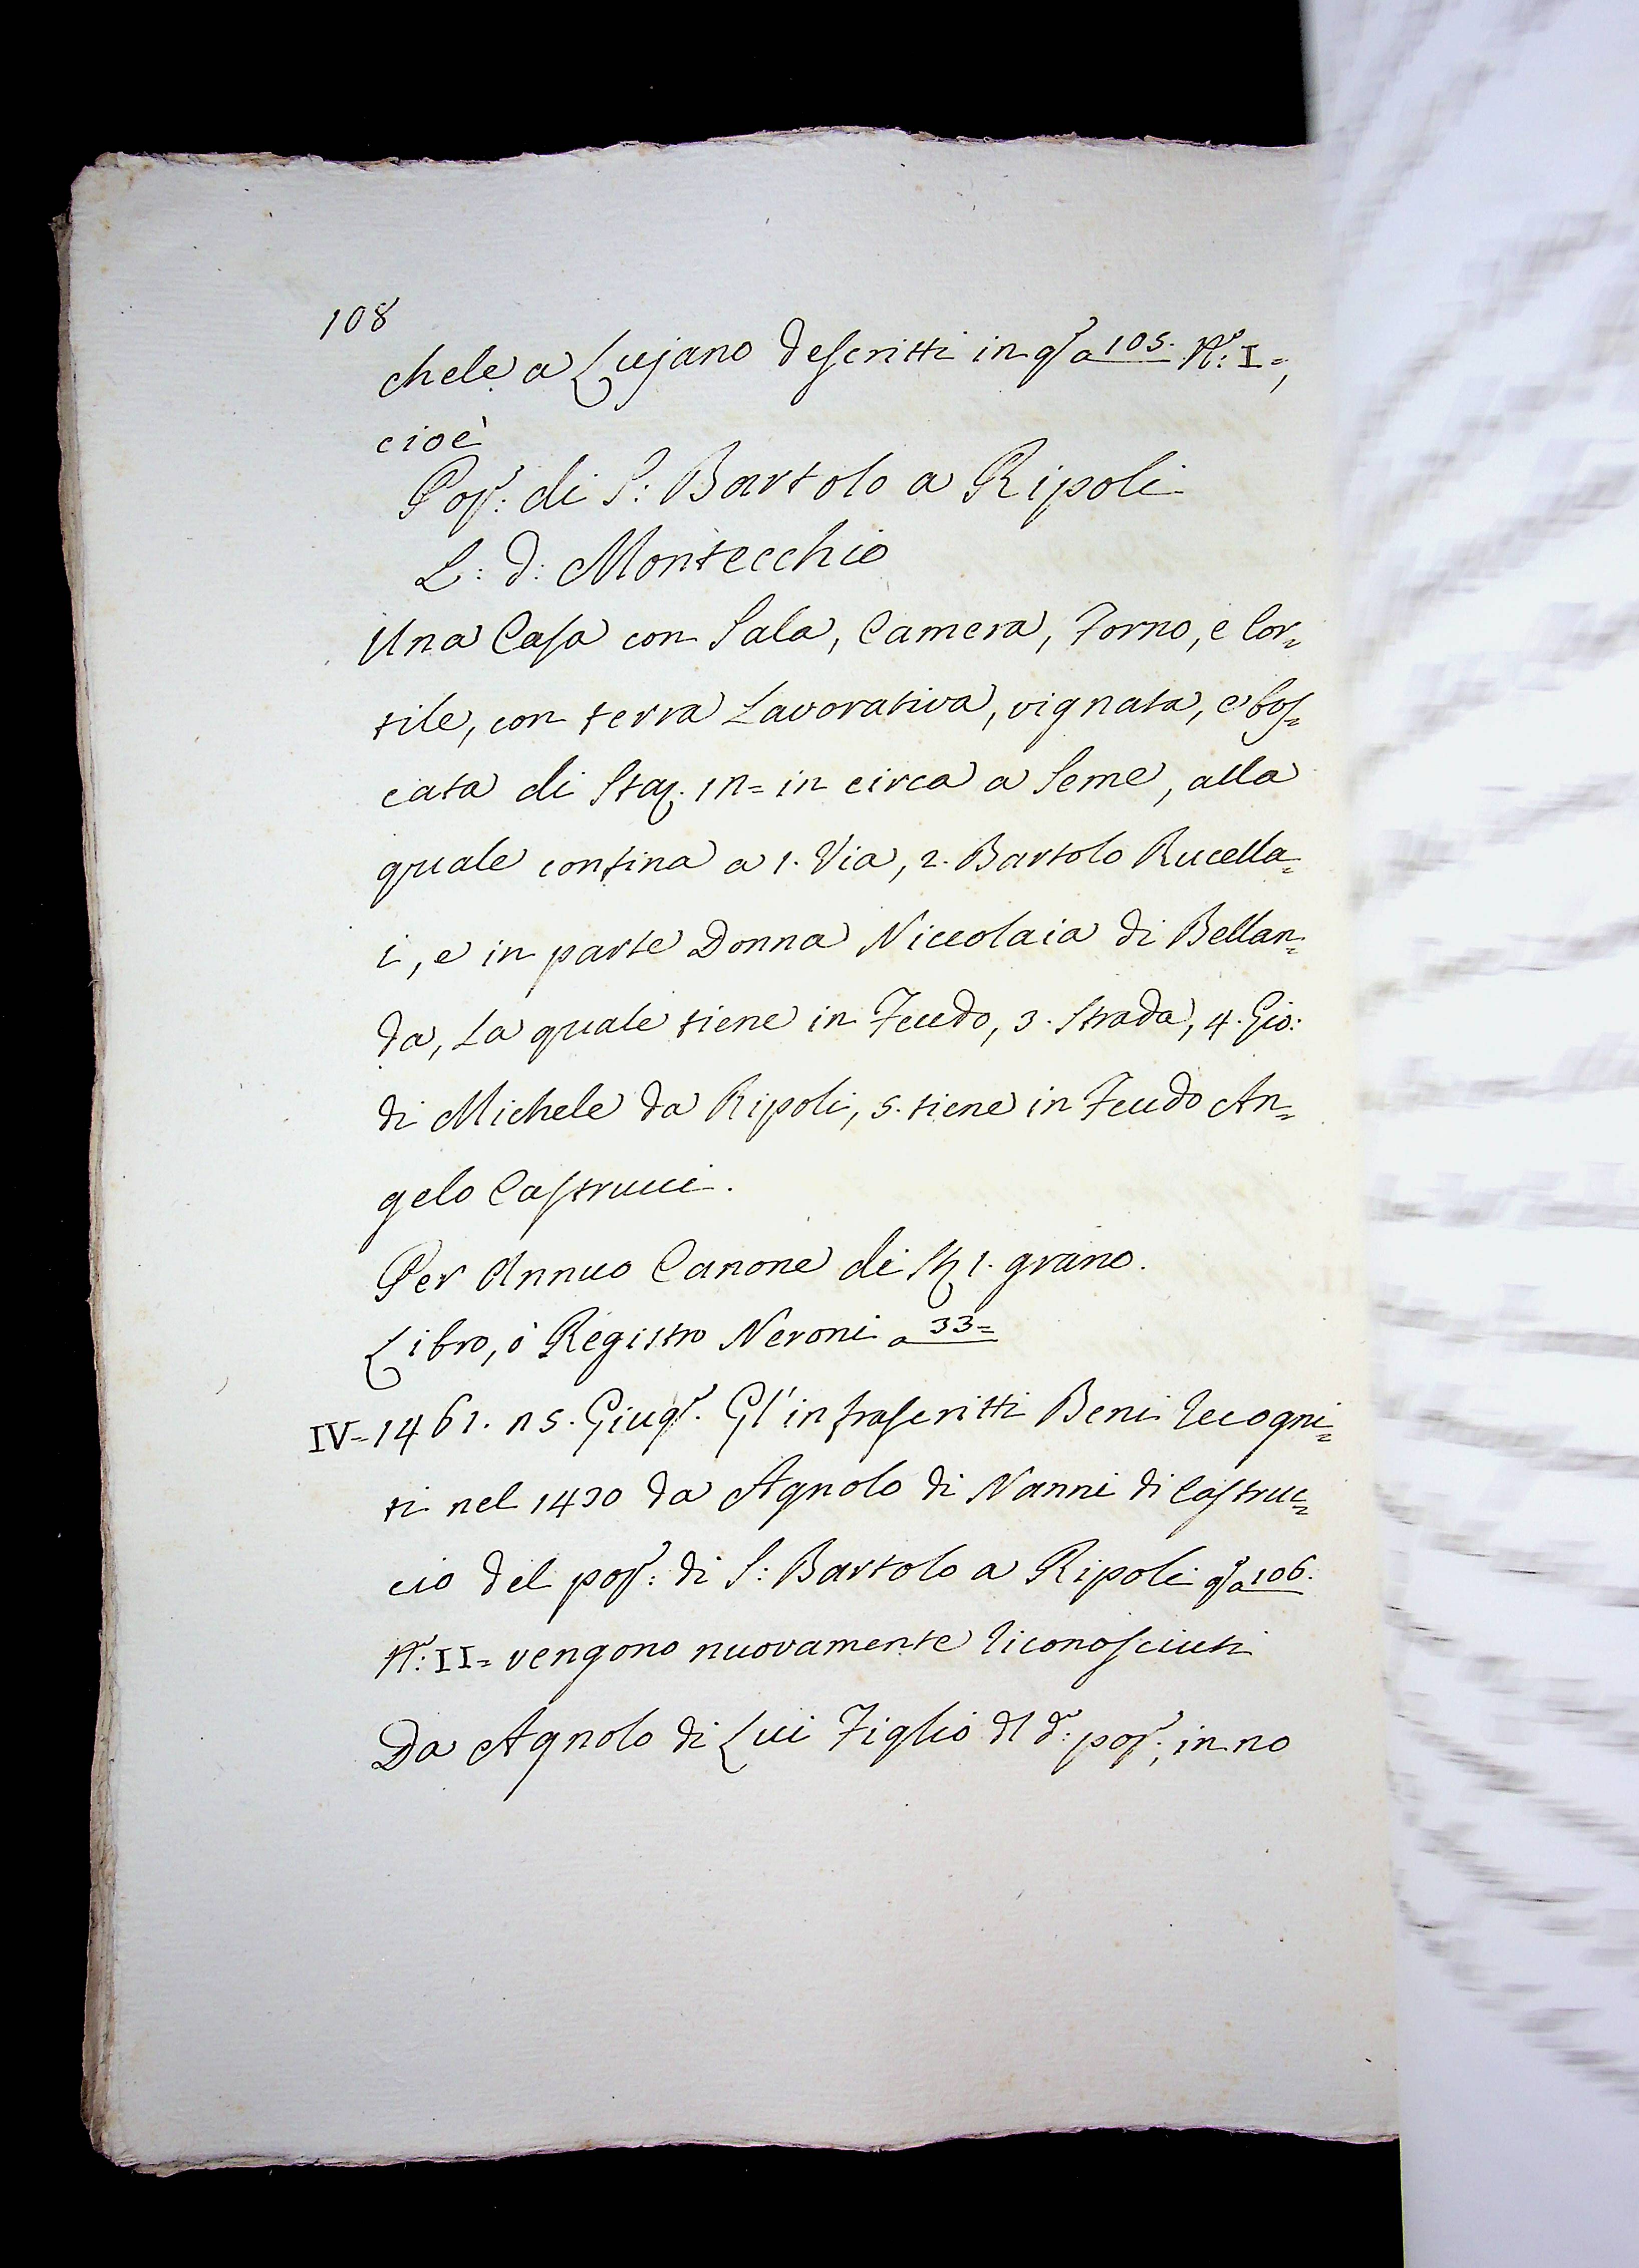 108
chele a Lujano descritti in qo a 105. No: I=,
cioè
Popo: di S: Bartolo a Ripoli
L: d: Montecchio
Una Casa con Sala, Camera, Forno, e Cor=
tile, con terra Lavorativa, vignata, e bos=
cata di Staj. 12= in circa a Seme, alla
quale confina a 1. Via, 2. Bartolo Rucella=
i, e in parte Donna Niccolaia di Bellan=
da, La quale tiene in Feudo, 3. Strada, 4. Gio:
di Michele da Ripoli, 5. tiene in Feudo An=
gelo Castrucci.
Per Annuo Canone di 1. grano.
Libro, ò Registro Neroni a 33=
IV=1461. 25. Giugo. Gl'infrascritti Beni recogni=
ti nel 1430 da Agnolo di Nanni di Castruc=
cio del popo: di S: Bartolo a Ripoli qo a 106.
No: II= vengono nuovamente riconosciuti
Da Agnolo di Lui Figlio dl do: popo:, in no